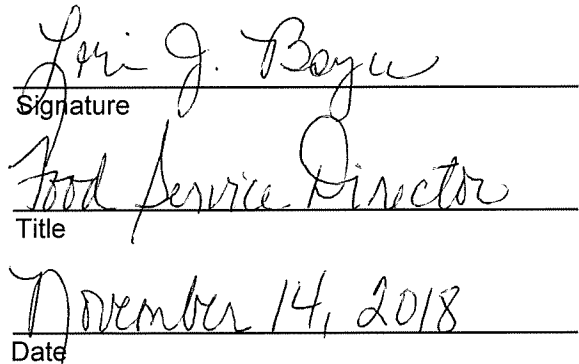 Lori J. Boyce
Signature
Food Service Director
Title
November 14, 2018
Date